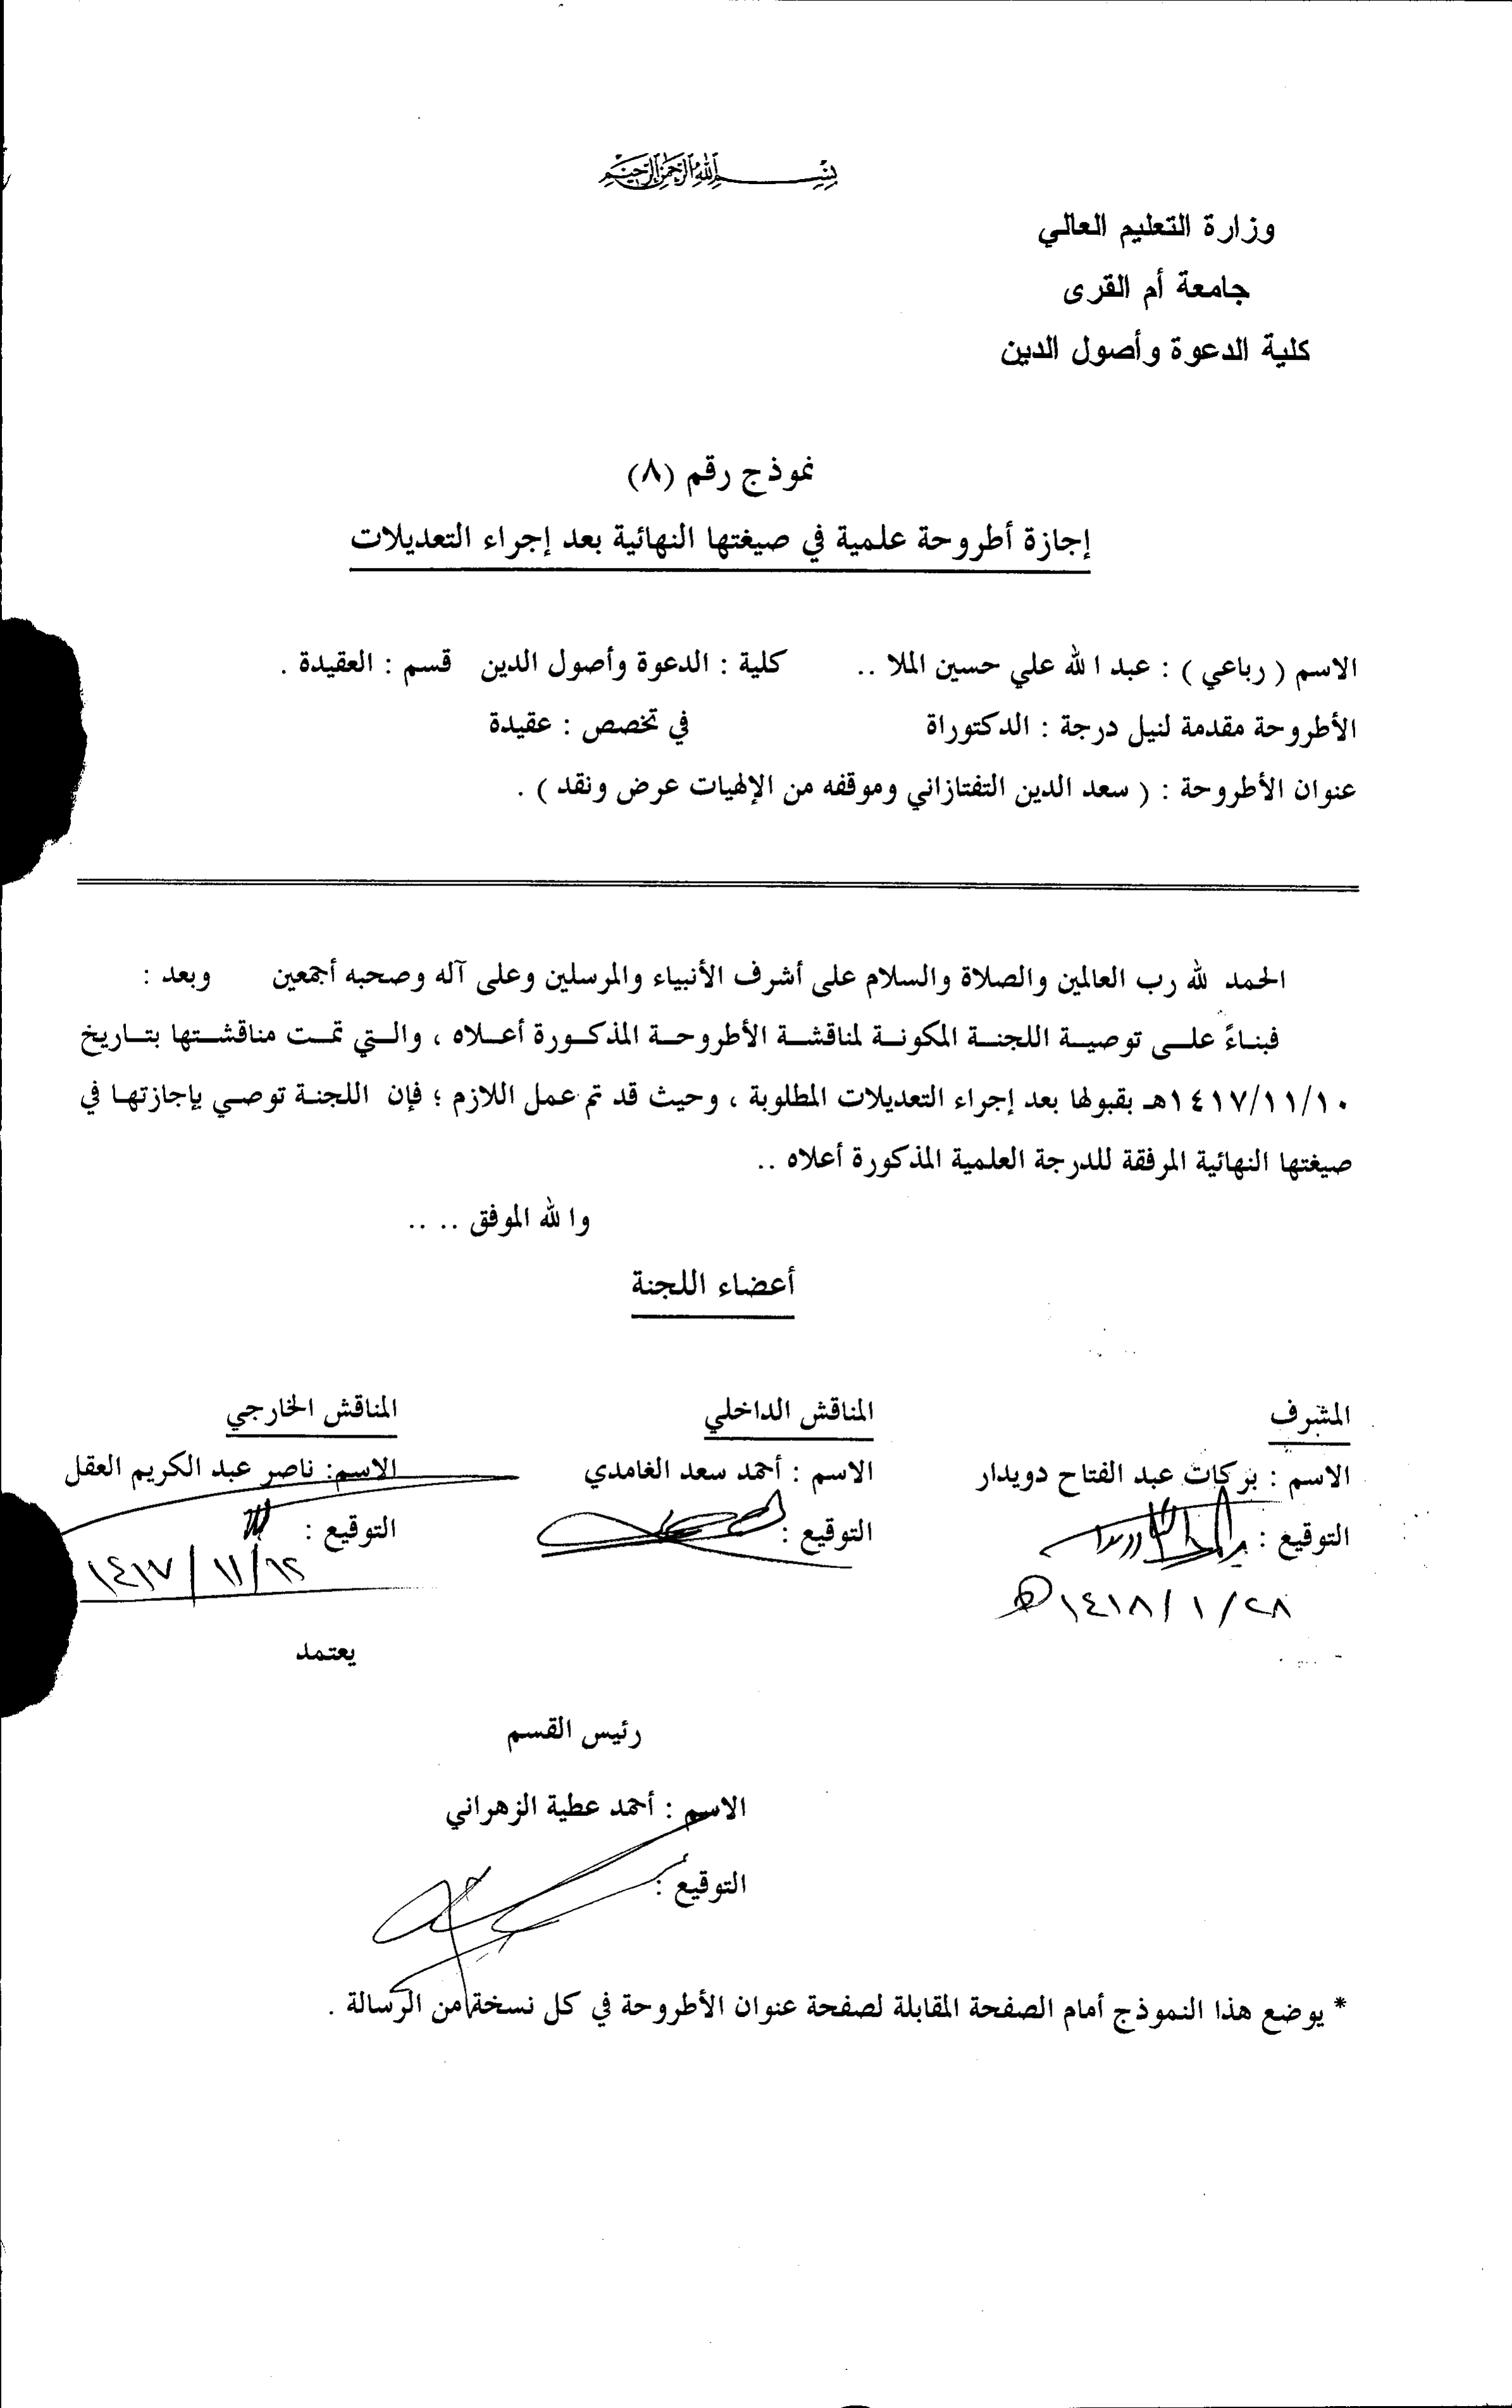 بسم الله الرحمن الرحيم
وزارة التعليم العالي
جامعة أم القرى
كلية الدعوة وأصول الدين
نموذج رقم (٨)
إجازة أطروحة علمية في صيغتها النهائية بعد إجراء التعديلات
الاسم ( رباعي ) : عبد الله علي حسين الملا .. كلية : الدعوة وأصول الدين قسم : العقيدة .
الأطروحة مقدمة لنيل درجة : الدكتوراة في تخصص : عقيدة
عنوان الأطروحة : ( سعد الدين التفتازاني وموقفه من الإلهيات عرض ونقد ) .
الحمد لله رب العالمين والصلاة والسلام على أشرف الأنبياء والمرسلين وعلى آله وصحبه أجمعين وبعد :
فبناءً على توصية اللجنة المكونة لمناقشة الأطروحة المذكورة أعلاه ، والتي تمت مناقشتها بتاريخ
١٤١٧/١١/١٠هـ بقبولها بعد إجراء التعديلات المطلوبة ، وحيث قد تم عمل اللازم ؛ فإن اللجنة توصي بإجازتها في
صيغتها النهائية المرفقة للدرجة العلمية المذكورة أعلاه ..
والله الموفق .. ..
أعضاء اللجنة
المشرف المناقش الداخلي المناقش الخارجي
الاسم : بركات عبد الفتاح دويدار الاسم : أحمد سعد الغامدي الاسم: ناصر عبد الكريم العقل
التوقيع : التوقيع : التوقيع :
١٤١٨/١/٢٨هـ
يعتمد
رئيس القسم
الاسم : أحمد عطية الزهراني
التوقيع :
* يوضع هذا النموذج أمام الصفحة المقابلة لصفحة عنوان الأطروحة في كل نسخة من الرسالة .